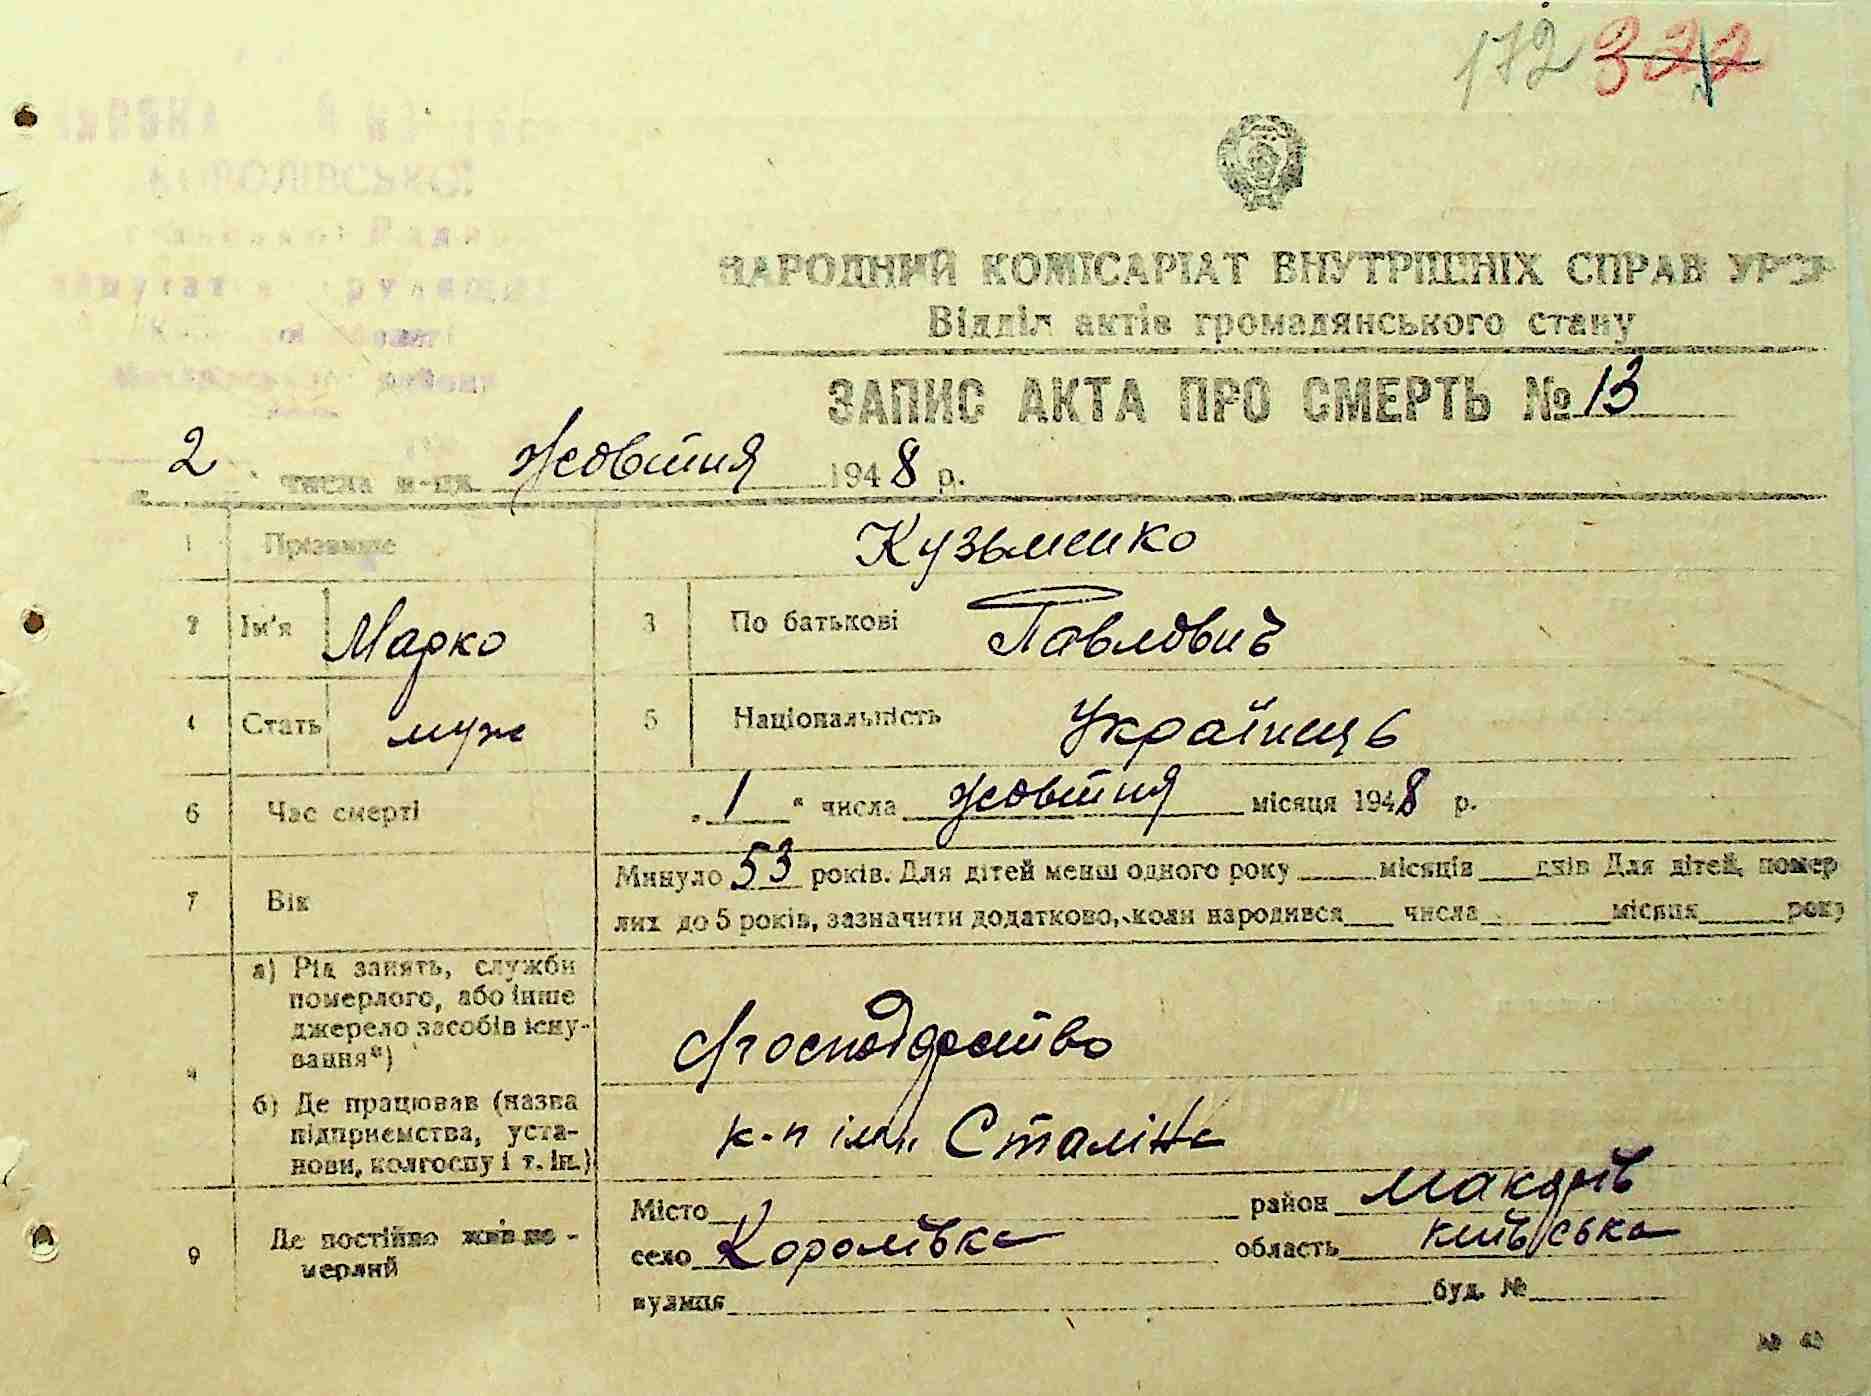 172 322
КОРОЛІВСЬКОЇ
НАРОДНИЙ КОМІСАРІАТ ВНУТРІШНІХ СПРАВ УРСР
Відділ актів громадянського стану
ЗАПИС АКТА ПРО СМЕРТЬ № 13
2 " числа м-ця Жовтня 1948 р.
1 Прізвище Кузьменко
2 Ім'я Марко 3 По батькові Павлович
4 Стать муж 5 Національність Українець
6 Час смерті „1" числа Жовтня місяця 1948 р.
7 Вік Минуло 53 років. Для дітей менш одного року місяців днів Для дітей, помер
лих до 5 років, зазначити додатково, коли народився числа місяця року
а) Рід занять, служби
померлого, або інше
джерело засобів існу-
вання*) с/господарство
б) Де працював (назва
підприємства, уста-
нови, колгоспу і т. ін.) к-п ім. Сталіна
9 Де постійно жив по-
мерлий
Місто район Макарів
село Королівка область Київська
вулиця буд. №